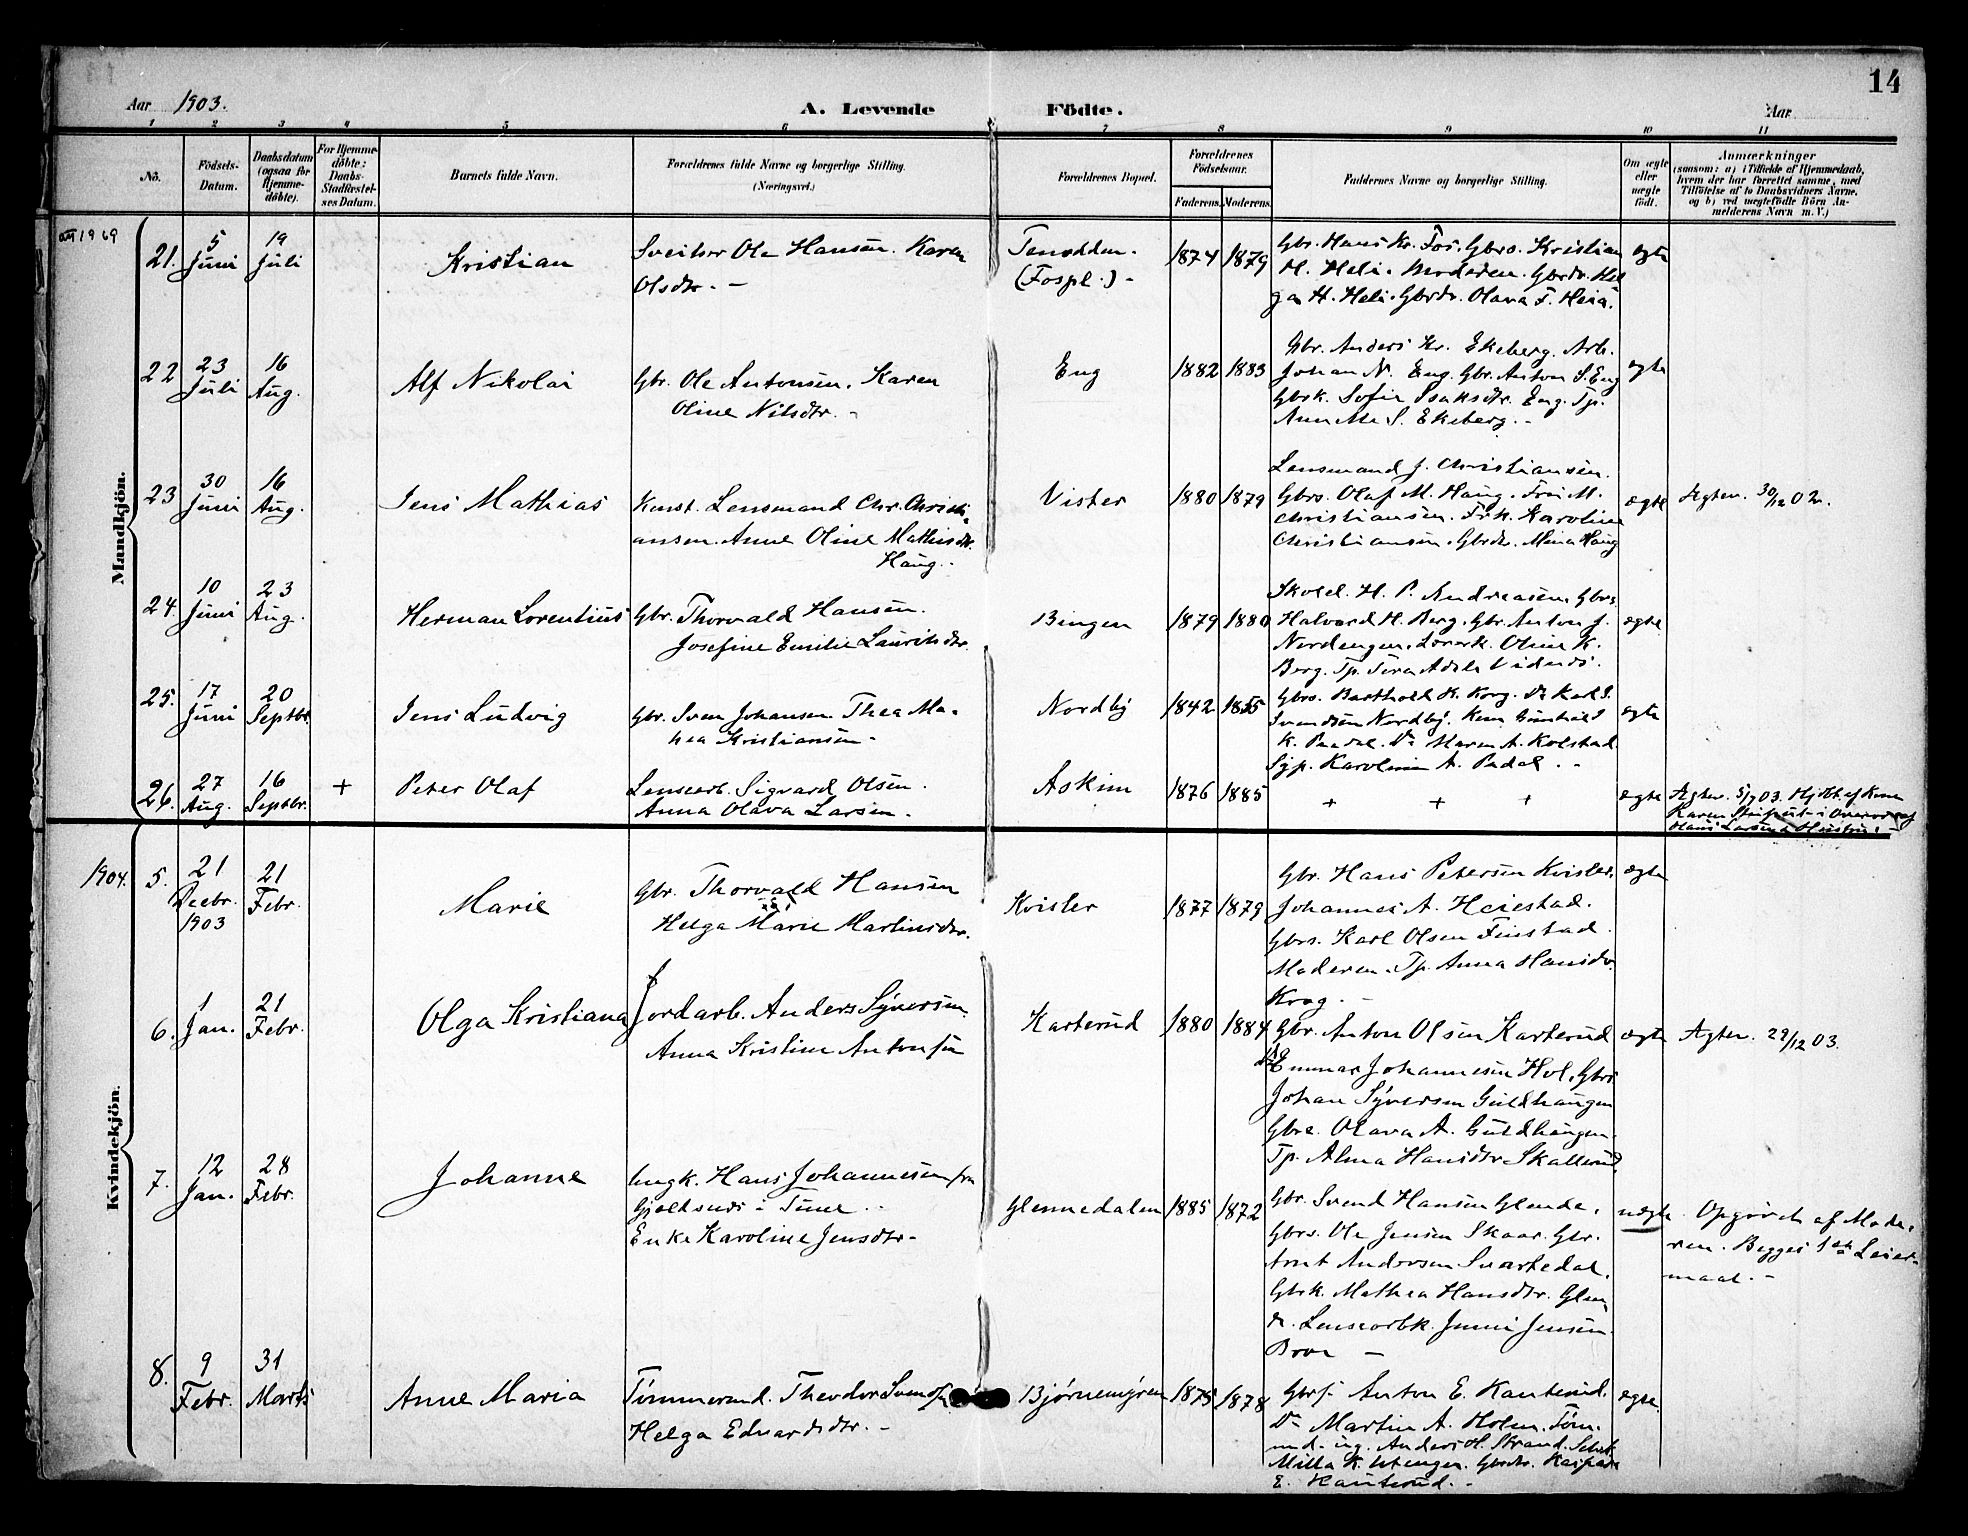 14
Aar 1903.
A. Levende Födte.
Aar
1 2 3 4 5 6 7 8 9 10 11
No.
Födsels-Datum.
Daabsdatum (ogsaa for Hjemme-döbte).
For Hjemme-döbte: Daabs-Stadfæstel-ses Datum.
Barnets fulde Navn.
Forældrenes fulde Navne og borgerlige Stilling. (Næringsvei.)
Forældrenes Bopæl.
Forældrenes Födselsaar.
Faderens. Moderens.
Faddernes Navne og borgerlige Stilling.
Om ægte eller uægte födt.
Anmærkninger
(saasom: a) i Tilfælde af Hjemmedaab, hvem der har forrettet samme, med Tilföielse af to Daabsvidners Navne, og b) ved uægtefödte Börn An-melderens Navn m. V.)
Mandkjön.
21. 5 Juni 19 Juli Kristian
Sveitser Ole Hansen. Karen
Olsdtr. -
(Fospl.) -
1874 1879
Gbr. Hans Kr. Fos. Gbrs. Kristian
H. Heli. Moderen. Gbrdtr. Hel
ga H. Heli. Gbrdtr. Olava T. Heia.
ægte
22 23 Juli 16 Aug. Alf Nikolai
Gbr. Ole Antonsen. Karen
Oline Nilsdtr. -
Eng
1882 1883
Gbr. Anders Kr. Ekeberg. Arb.
Johan N. Eng. Gbr. Anton S. Eng
Gbrk. Sofie Isaksdtr. Eng. Tp.
Anne Ma S. Ekeberg. -
ægte
23 30 Juni 16 Aug. Jens Mathias
Konst. Lensmand Chr. Christi-
ansen. Anne Oline Mathisdtr.
Haug. -
Vister
1880 1879
Lensmand J. Christiansen.
Gbrs. Olaf M. Haug. Fru M.
Christiansen. Frk. Karoline
Christiansen. Gbrdtr. Mina Haug
ægte
Ægtev. 30/12 02.
24 10 Juni 23 Aug. Herman Lorentius
Gbr. Thorvald Hansen.
Josefine Emilie Lauritsdtr.
Bingen
1879 1880
Skolel. H. P. Andreasen. Gbrs.
Halvard H. Berg. Gbr. Anton J.
Nordengen. Oline K.
Berg. Tp.
ægte
25. 17 Juni 20 Septbr. Jens Ludvig
Gbr. Sven Johansen. Thea Ma-
thea Kristiansen -
Nordby
1842 1855
Gbrs. Barthold K. Krog. Do Karl S.
Svendsen Nordby.
K. Do Maren A. Kolstad.
Karoline A.
ægte
26. 27 Aug. 16 Septbr. + Peter Olaf
Lensearb. Sigvard Olsen.
Anna Olava Larsen. -
Askim
1876 1885
+ + +
ægte
Ægtev. 5/7 03. Hjdbt. af Kone
Karen
Kvindekjön.
1904. 5. 21 Decbr. 1903 21 Febr. Marie
Gbr. Thorvald Hansen
Helga Marie Martinsdtr.
Kvister
1877 1879
Gbr. Hans Petersen Kvister.
Johannes A. Heiestad.
Gbrs. Karl Olsen Finstad.
Moderen. Tp. Anna Hansdtr.
Krog. -
ægte
6. 1 Jan. 21 Febr. Olga Kristiana
Jordarb. Anders Syversen.
Anna Kristine Antonsen
Karterud
1880 1884
Gbr. Anton Olsen Karterud
Do Emmar Johannesen Hol. Gbrs
Johan Syversen Guldhaugen
Gbrs. Olava A. Guldhaugen.
Tp. Alma Hansdtr Skallerud
ægte
Ægtev. 29/12 03.
7. 12 Jan. 28 Febr. Johanne
Ungk. Hans Johannesen fra
i Tune -
Enke Karoline Jensdtr -
Glennedalen
1885 1872
Gbr. Svend Hansen Glende.
Gbrs. Ole Jensen Skaar. Gbr.
Andersen Svartedal.
Gbrk. Mathea Hansdtr. Glen
de. Lensearbk. Jensen
uægte
Opgivet af Mode-
ren. Begges 1ste Leier-
maal. -
8. 9 Febr. 31 Marts Anne Maria
Tömmermd. Theodor Svendsen
Helga Edvardsdtr. -
Bjørnemyren
1875 1878
Gbrf. Anton E. Kanterud.
Do Martin A. Holm. Töm
md. Anders H. Strand.
Milla K. Gbrdtr. Kaspara
E. Kanterud. -
ægte.